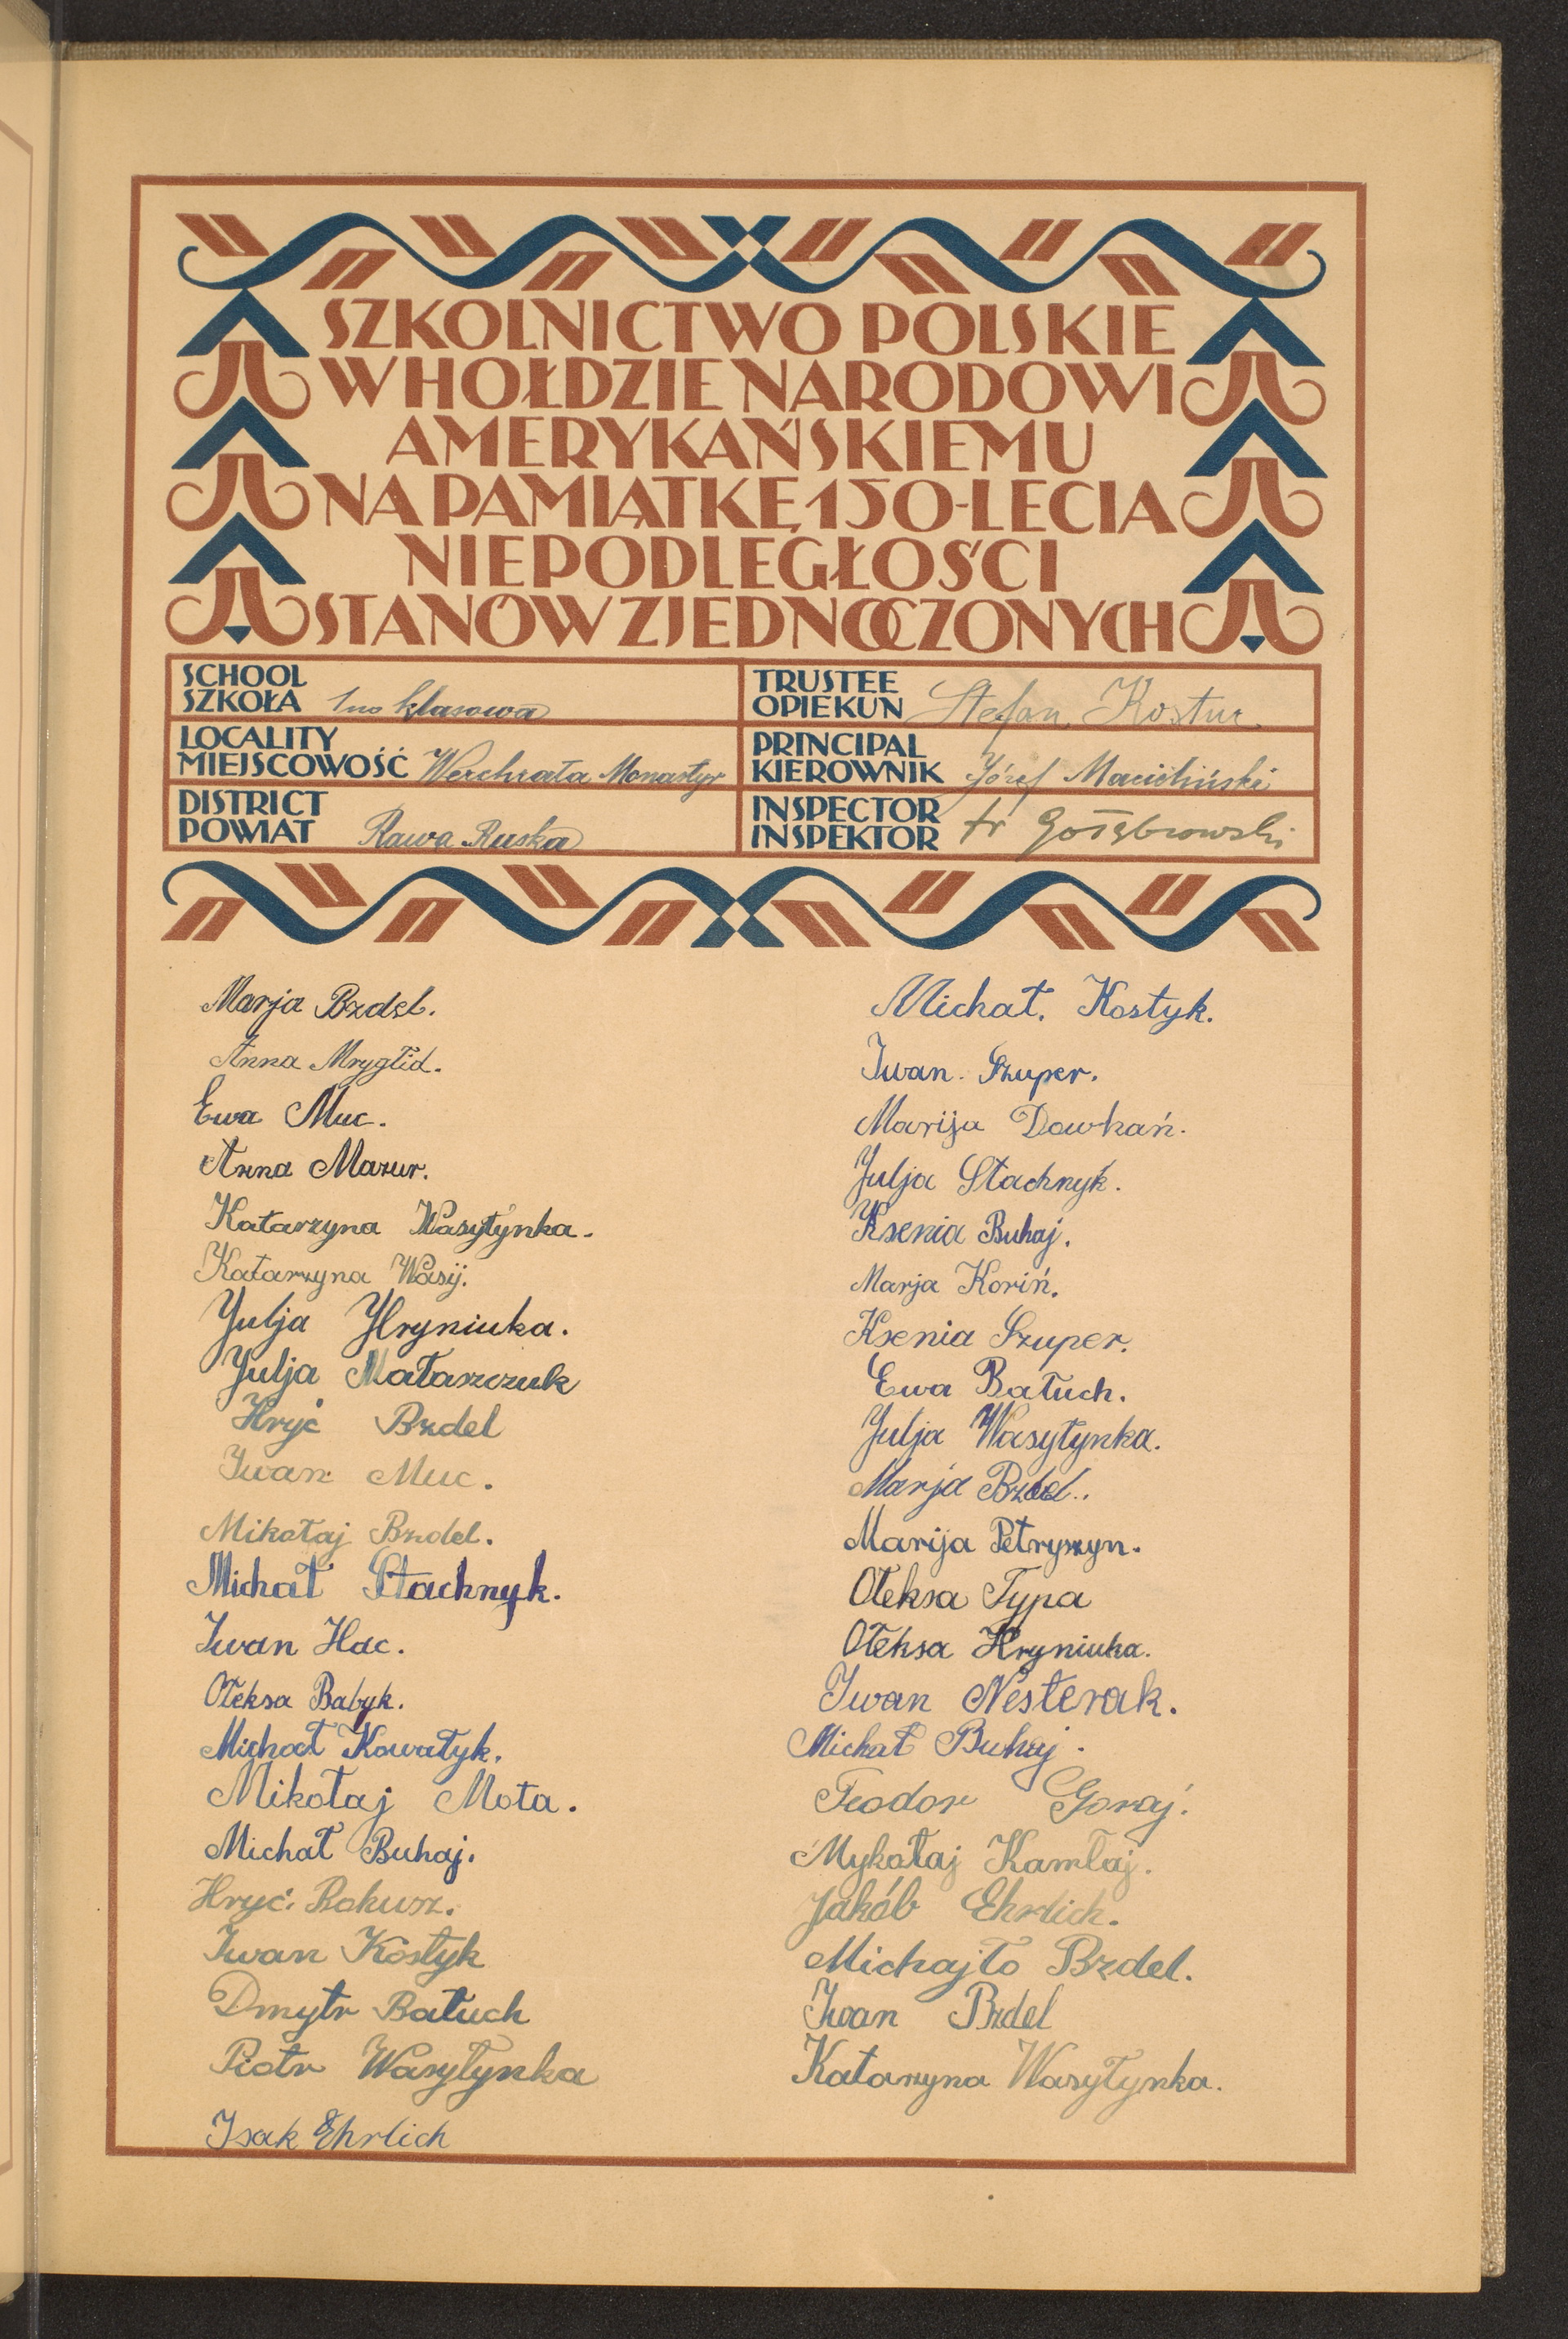 SZKOLNICTWO POLSKIE
W HOŁDZIE NARODOWI
AMERYKAŃSKIEMU
NA PAMIĄTKĘ 150-LECIA
NIEPODLEGŁOŚCI
STANÓW ZJEDNOCZONYCH
SCHOOL
SZKOŁA 1no klasowa
LOCALITY
MIEJSCOWOŚĆ Werchrata Monastyr
DISTRICT
POWIAT Rawa Ruska
TRUSTEE
OPIEKUN Stefan Kostur
PRINCIPAL
KIEROWNIK Józef
INSPECTOR
INSPEKTOR Fr Gołąbrowski
Marja Bzdel.
Anna Mrygłid.
Ewa Muc.
Anna Mazur.
Katarzyna Wasyłynka.
Katarzyna Wasij.
Julja Hryniuka.
Julja Mataszczuk
Hryć Bzdel
Iwan Muc.
Mikołaj Bzdel.
Michał Stachnyk.
Iwan Hac.
Ołeksa Babyk.
Michał Kowałyk.
Mikołaj Mota.
Michał Buhaj.
Hryć Rokusz.
Iwan Kostyk
Dmytr Bałuch
Piotr Wasyłynka
Isak Ehrlich
Michał. Kostyk.
Iwan. Szuper.
Marija Dowhań.
Julja Stachnyk.
Ksenia Buhaj.
Marja Koriń.
Ksenia Szuper.
Ewa Bałuch.
Julja Wasyłynka.
Marja Bzdel.
Marija Petryszyn.
Ołeksa Typa
Ołeksa Hryniuka.
Iwan Nesterak.
Michał Buhaj.
Teodor Goraj.
Mykołaj Kamłaj.
Jakób Ehrlich.
Michajło Bzdel.
Iwan Bzdel
Katarzyna Wasyłynka.